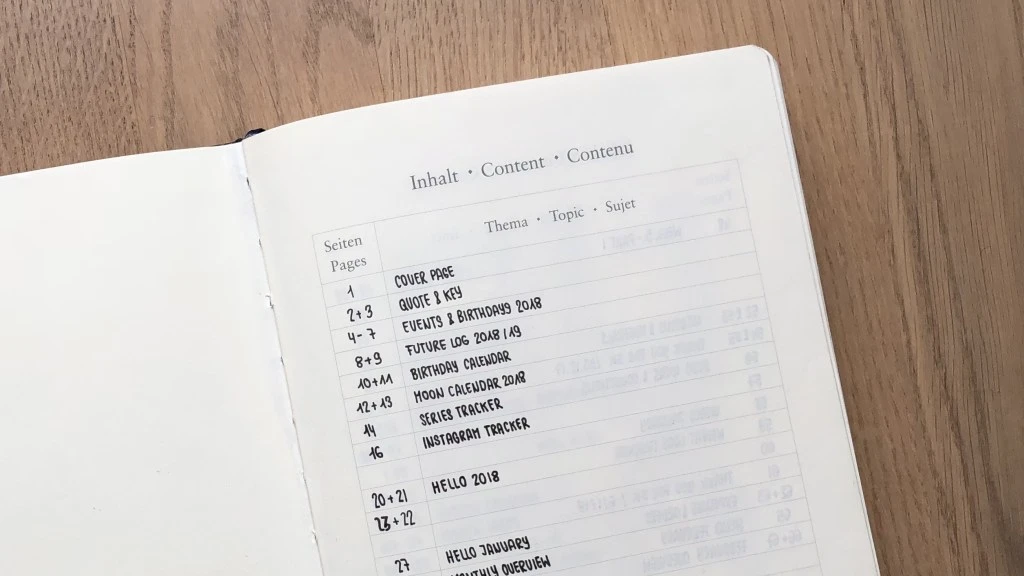 Inhalt · Content · Contenu
Seiten
Pages
Thema · Topic · Sujet
1 COVER PAGE
2+3 QUOTE & KEY
4-7 EVENTS & BIRTHDAYS 2018
8+9 FUTURE LOG 2018/19
10+11 BIRTHDAY CALENDAR
12+13 MOON CALENDAR 2018
14 SERIES TRACKER
16 INSTAGRAM TRACKER
20+21 HELLO 2018
+22
27 HELLO JANUARY
MONTHLY OVERVIEW